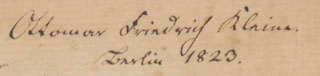 Ottomar Friedrich Kleine.
Berlin 1823.